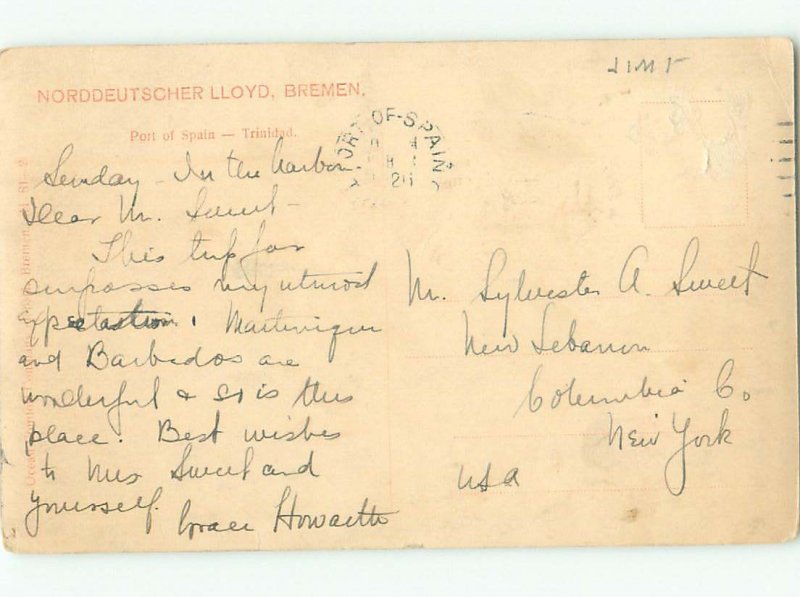 NORDDEUTSCHER LLOYD, BREMEN.
Port of Spain — Trinidad.
PORT-OF-SPAIN
Sunday - In the harbor.
Dear Mr. Sweet -
This trip far
surpasses my utmost
expectation. Martinique
and Barbados are
wonderful & so is this
place. Best wishes
to Mrs Sweet and
yourself.
Grace Howarth
Mr. Sylvester A. Sweet
New Lebanon
Columbia Co.
New York
USA